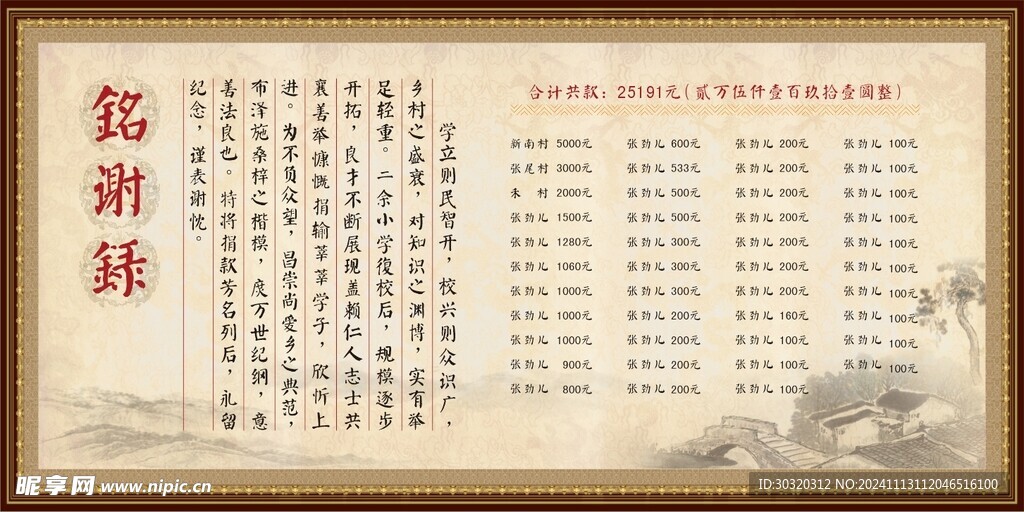 銘谢録
学立则民智开，校兴则众识广，
乡村之盛衰，对知识之渊博，实有举
足轻重。二余小学復校后，规模逐步
开拓，良才不断展现盖赖仁人志士共
襄善举慷慨捐输莘莘学子，欣忻上
进。为不负众望，昌崇尚爱乡之典范，
布泽施桑梓之楷模，度万世纪纲，意
善法良也。特将捐款芳名列后，永留
纪念，谨表谢忱。
合计共款：25191元(贰万伍仟壹百玖拾壹圆整)
新南村 5000元 张劲儿 600元 张劲儿 200元 张劲儿 100元
张尾村 3000元 张劲儿 533元 张劲儿 200元 张劲儿 100元
禾 村 2000元 张劲儿 500元 张劲儿 200元 张劲儿 100元
张劲儿 1500元 张劲儿 500元 张劲儿 200元 张劲儿 100元
张劲儿 1280元 张劲儿 300元 张劲儿 200元 张劲儿 100元
张劲儿 1060元 张劲儿 300元 张劲儿 200元 张劲儿 100元
张劲儿 1000元 张劲儿 300元 张劲儿 200元 张劲儿 100元
张劲儿 1000元 张劲儿 200元 张劲儿 160元 张劲儿 100元
张劲儿 1000元 张劲儿 200元 张劲儿 100元 张劲儿 100元
张劲儿 900元 张劲儿 200元 张劲儿 100元 张劲儿 100元
张劲儿 800元 张劲儿 200元 张劲儿 100元
昵享网 www.nipic.cn
ID:30320312 NO:20241113112046516100